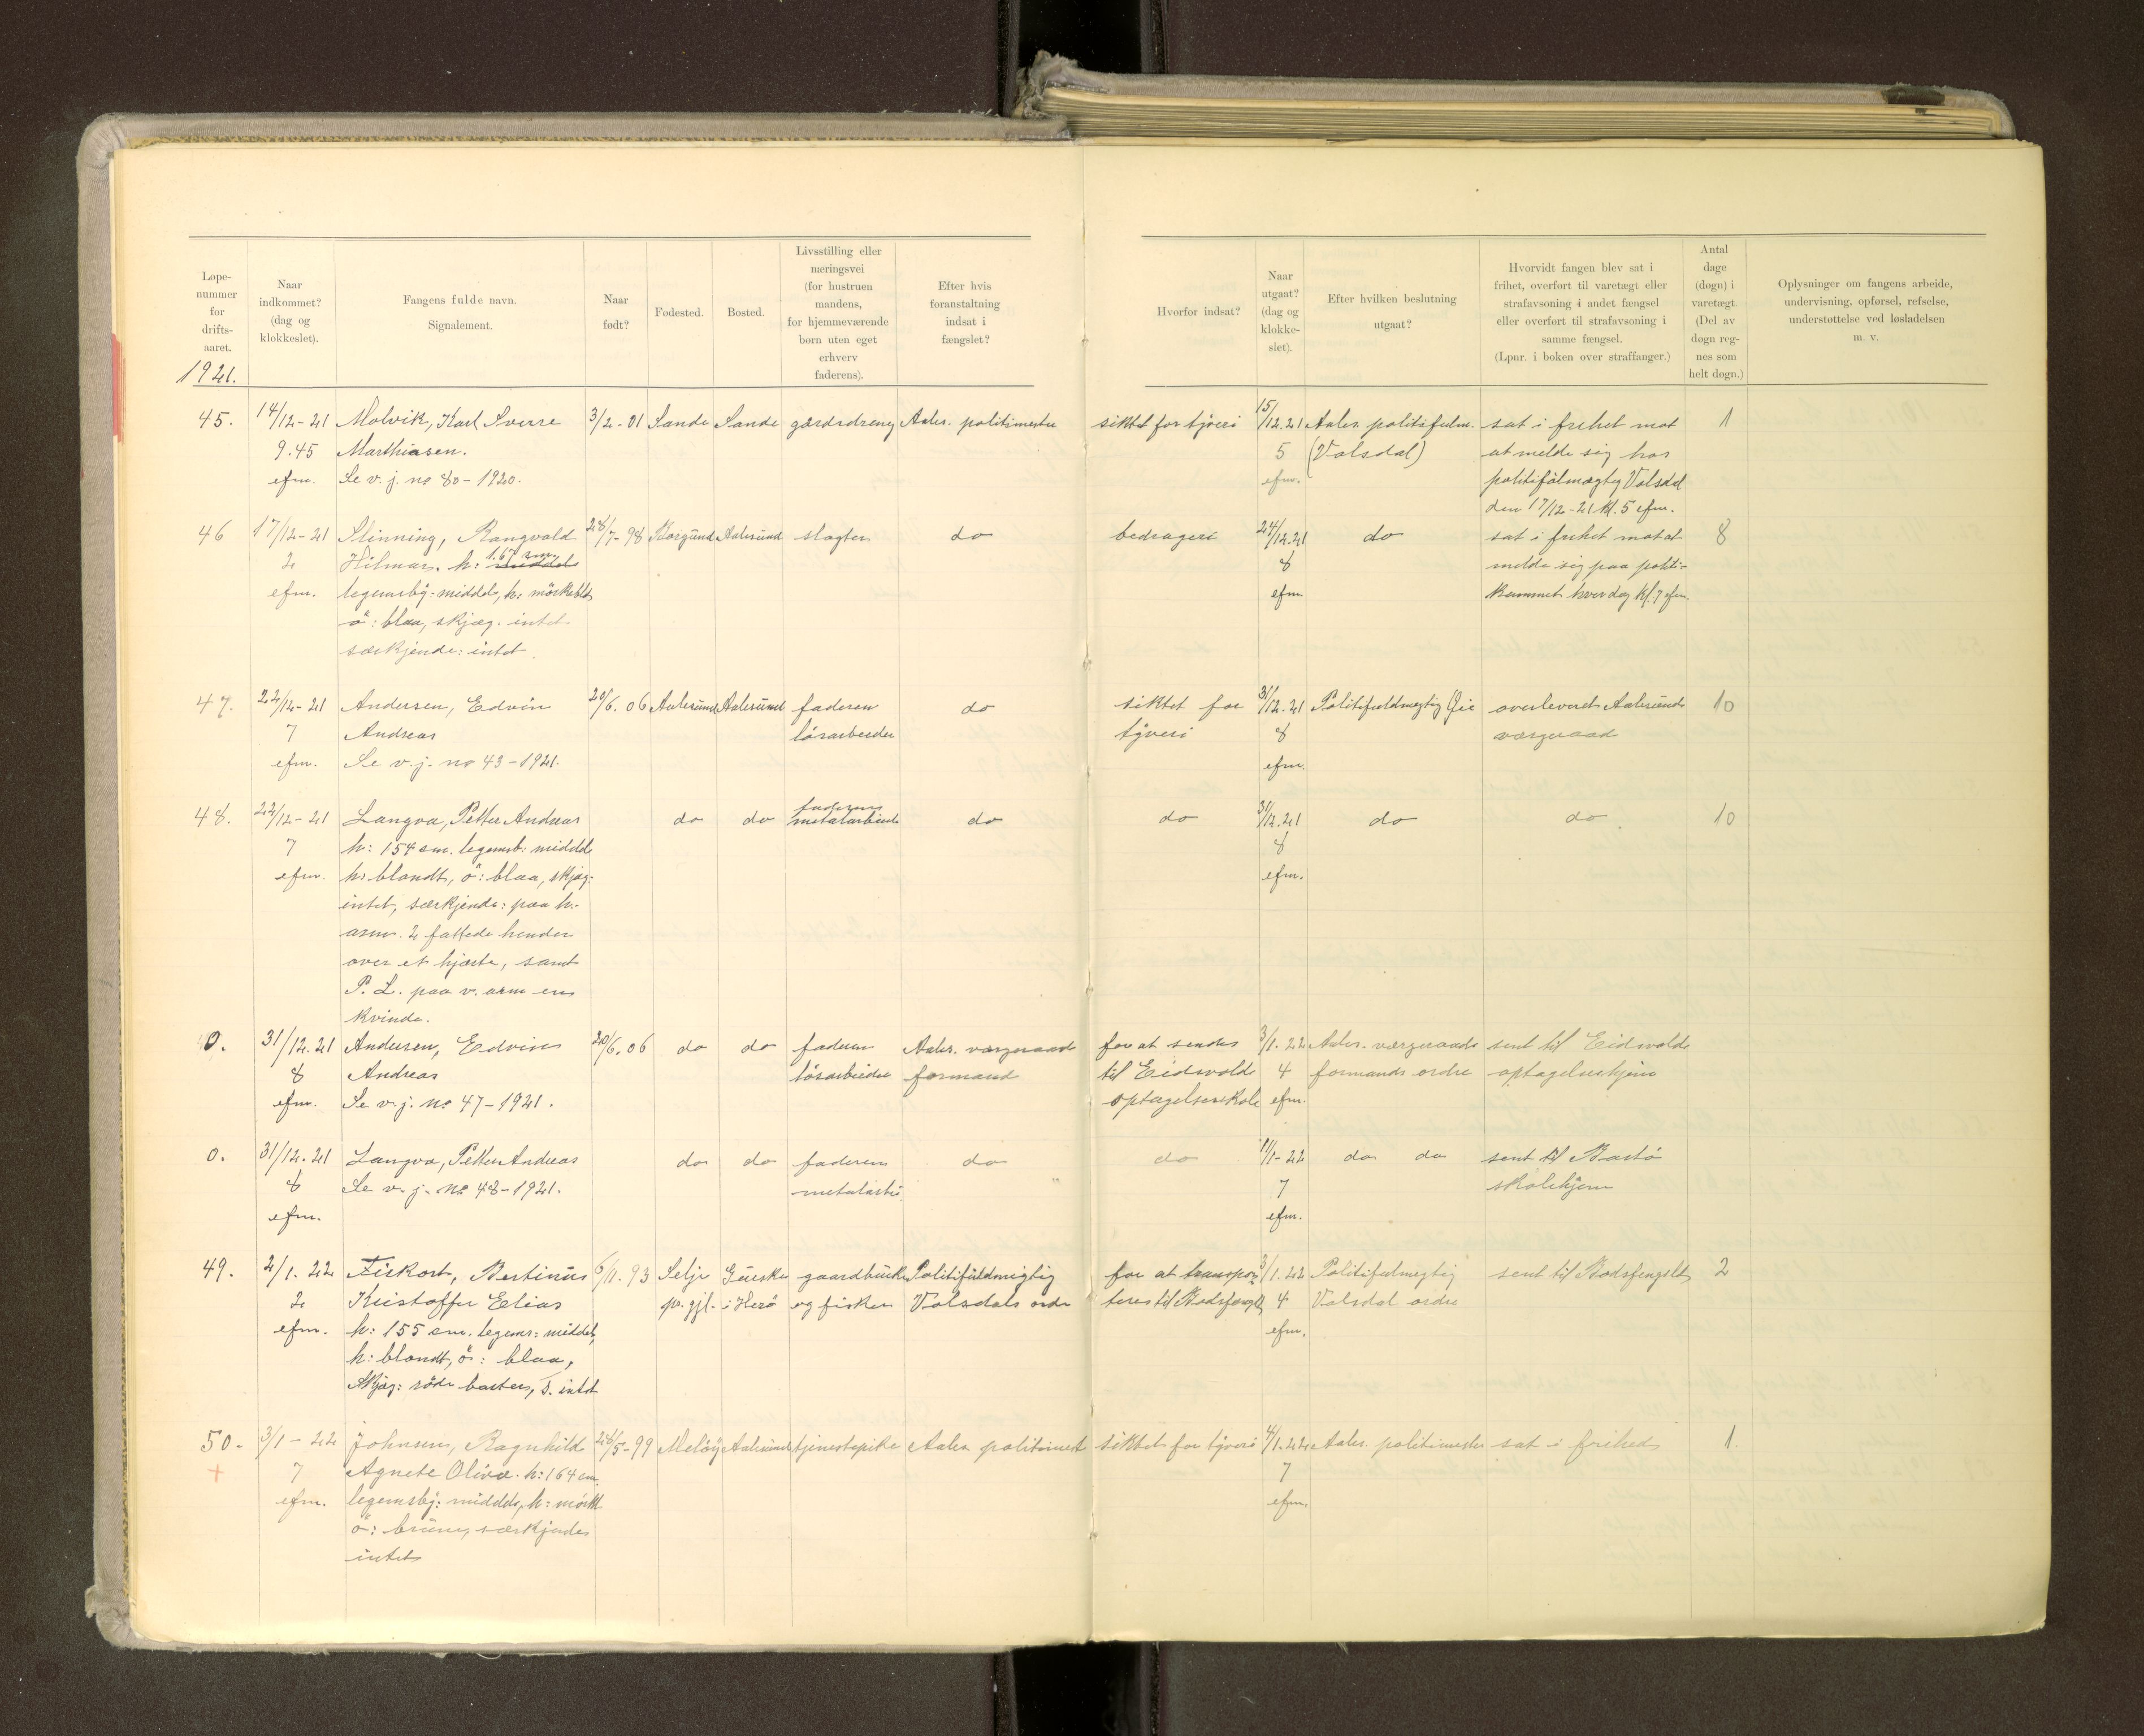 Løpe-
nummer
for
drifts-
aaret.
1921.
Naar
indkommet?
(dag og
klokkeslet).
Fangens fulde navn.
Signalement.
Naar
født?
Fødested.
Bosted.
Livsstilling eller
næringsvei
(for hustruen
mandens,
for hjemmeværende
børn uten eget
erhverv
faderens).
Efter hvis
foranstaltning
indsat i
fængslet?
Hvorfor indsat?
Naar
utgaat?
(dag og
klokke-
slet).
Efter hvilken beslutning
utgaat?
Hvorvidt fangen blev sat i
frihet, overført til varetægt eller
strafavsoning i andet fængsel
eller overført til strafavsoning i
samme fængsel.
(Lpnr. i boken over straffanger.)
Antal
dage
(døgn) i
varetægt.
(Del av
døgn reg-
nes som
helt døgn.)
Oplysninger om fangens arbeide,
undervisning, opførsel, refselse,
understøttelse ved løsladelsen
m. v.
45. 14/12-21 Molvik, Karl Sverre 3/2-01 Sande Sande gårdsdreng Aales. politimester siktet for tyveri 15/12.21 Aales. politifulm. sat i frihet mot 1
9.45 Marthiasen. 5 (Valsdal) at melde sig hos
efm. Se v. j. no 80-1920. efm. politifulmægtig Valsdal
den 17/12-21 kl. 5 efm.
46 17/12-21 Slinning, Rangvald 28/7-98 Borgund Aalesund slagter do bedrageri 24/12.21 do sat i frihet mot at 8
2 Hilmar. h: 1.67 cm. 8 melde sig paa politi-
efm. legemsby: middels, h: mörkeblo efm. kammret hver dag kl. 7 efm.
ö: blaa, skjæg: intet
særkjende: intet.
47. 22/12-21 Andersen, Edvin 20/6.06 Aalesund Aalesund faderen do siktet for 31/12.21 Politifuldmegtig Øie overleveret Aalesunds 10
7 Andreas lösarbeider tyveri 8 værgeraad
efm. Se v. j. no 43-1921. efm.
48. 22/12-21 Langva, Petter Andreas do do faderens do do 31/12.21 do do 10
metalarbeid
7 h: 154 cm. legemsb: middels 8
efm. h: blondt, ö: blaa, skjæg: efm.
intet, særkjende: paa h.
arm. 2 fattede hender
over et hjærte, samt
P. L. paa v. arm en
kvinde.
0. 31/12.21 Andersen, Edvin 20/6.06 do do faderen Aales. værgeraads for at sendes 3/1.22 Aales. værgeraads sent til Eidsvolds
8 Andreas lösarbeider formand til Eidsvolds 4 formands ordre optagelseshjem
efm. Se v. j. no 47-1921. optagelseskole efm.
0. 31/12.21 Langva, Petter Andreas do do faderen do do 11/1-22 do do sent til Bastö
8 Se v. j. no 48-1921. metalarbei. 7 skolehjem
efm. efm.
49. 2/1.22 Fiskort, Bertinus 6/11.93 Selje Gurske gaardbruker Politifuldmegtig for at transpor- 3/1.22 Politifulmegtig sent til Bodsfengslet 2
2 Kristoffer Elias pr. gjl. i Herö og fisker Valsdals ordre teres til Bodsfængsl 4 Valsdal ordre
efm. h: 155 cm. legems: middel, efm.
h: blondt, ö: blaa,
Skjæg: röde barter, s. intet
50. 3/1-22 Johnsen, Ragnhild 28/5-99 Melöy Aalesund tjenestepike Aales. politimest siktet for tyveri 4/1.22 Aales. politimester sat i frihed 1.
+ 7 Agnete Oliva. h: 164 cm. 7
efm. legemsby: middels, h: mörkt efm.
ö: brune, særkjende
intet